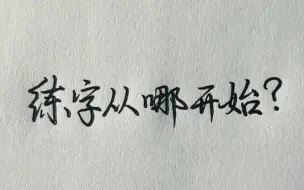 练字从哪开始？